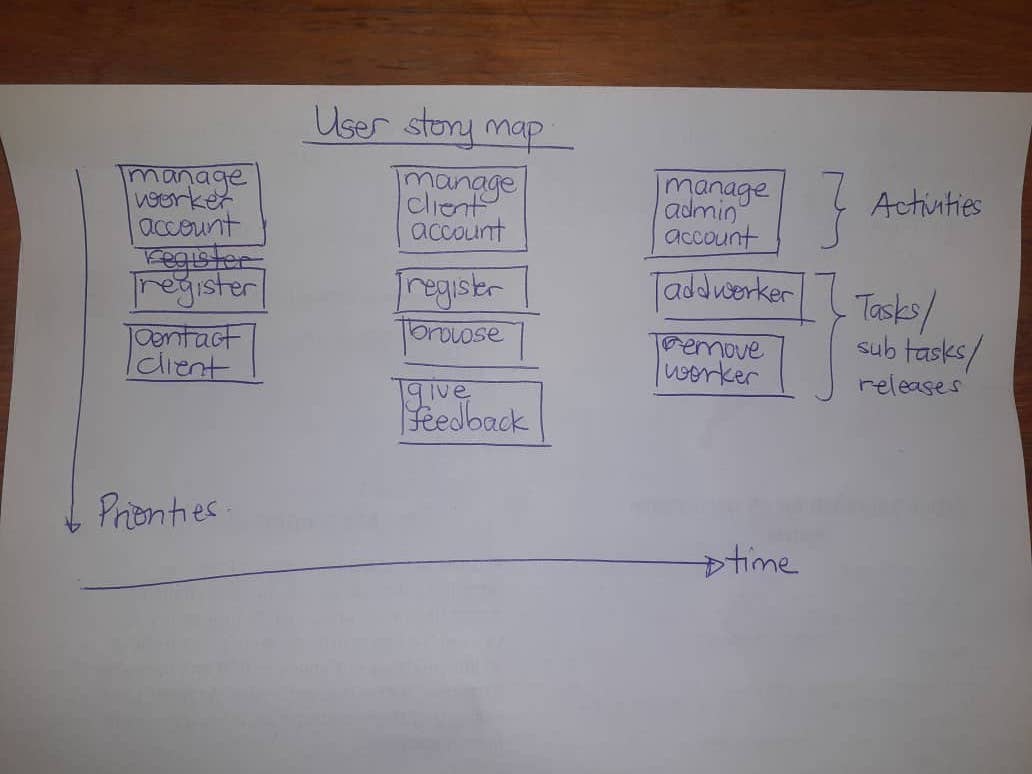 User story map
manage
worker
account
register
register
contact
client
manage
client
account
register
browse
give
feedback
manage
admin
account
add worker
remove
worker
Activities
Tasks/
sub tasks/
releases
Priorities
time